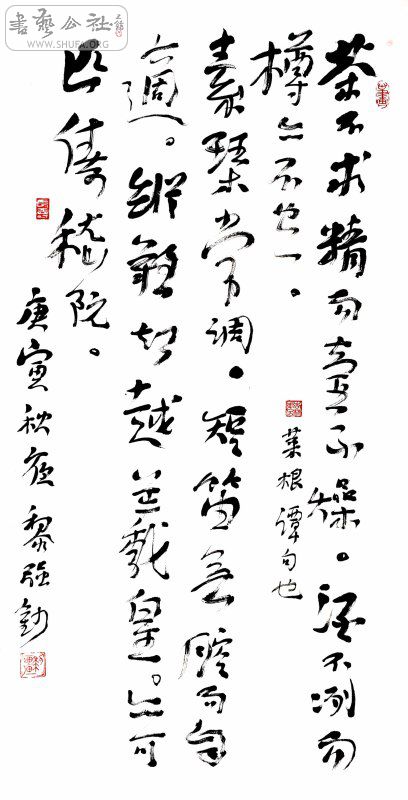 茶不求精而壺不燥。酒不冽而
樽亦不空。
菜根譚句也
素琴常調。短笛無腔而自
適。縱難超越羲皇。亦可
匹儔嵇阮。
庚寅秋夜黎強鈔
書藝公社
WWW.SHUFA.ORG